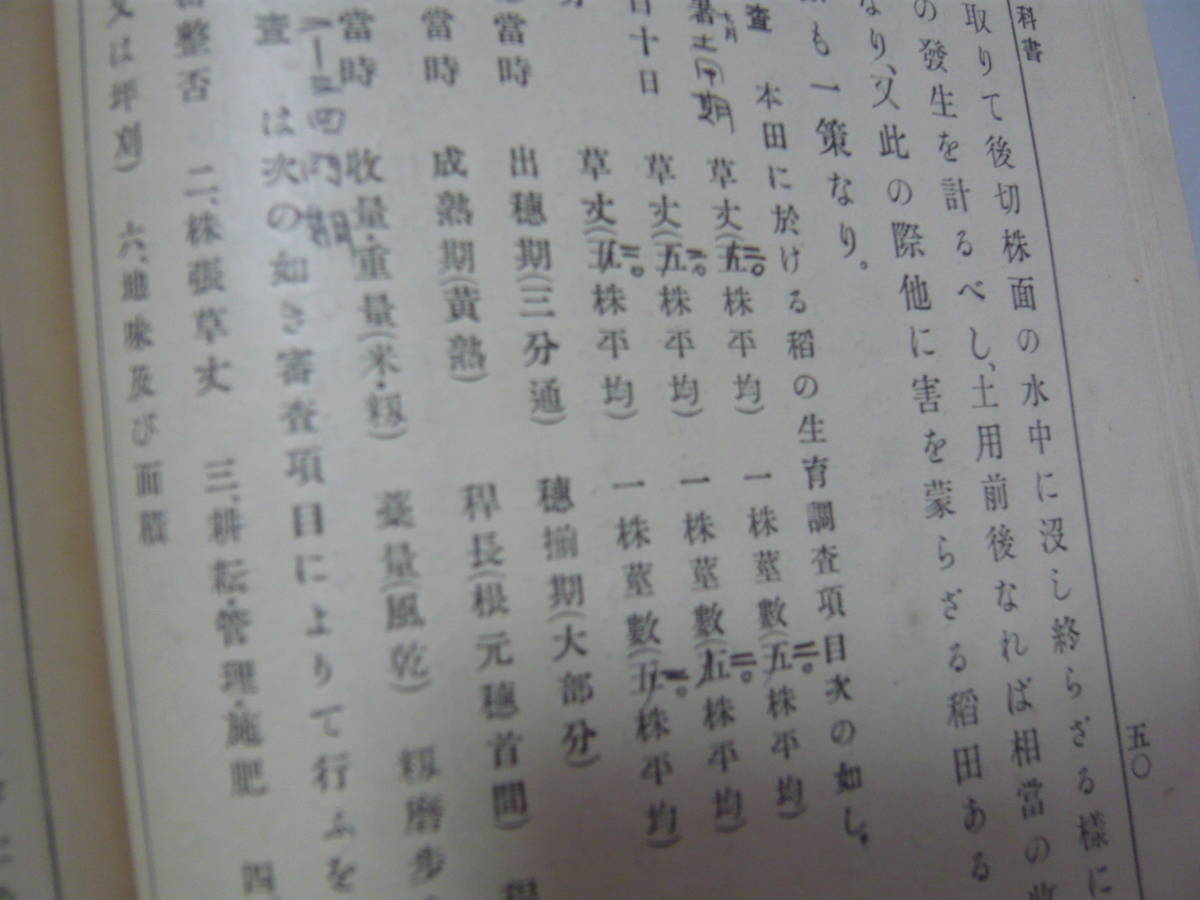 科書
五〇
取りて後切株面の水中に沒し終らざる樣に
の發生を計るべし、土用前後なれば相當の
なり、又此の際他に害を蒙らざる稻田ある
も一策なり。
査 本田に於ける稻の生育調査項目次の如し。
土用期 草丈(五株平均) 一株莖數(五株平均)
二〇 二〇
日十日 草丈(五株平均) 一株莖數(五株平均)
二〇 二〇
草丈(五株平均) 一株莖數(五株平均)
二〇 二〇
當時 出穗期(三分通) 穗揃期(大部分)
當時 成熟期(黃熟) 稈長(根元穗首間) 稈
當時 收量・重量(米・籾) 藁量(風乾) 籾磨步
査 は次の如き審査項目によりて行ふを
整否 二、株張草丈 三、耕耘・管理・施肥 四、
又は坪刈) 六、地味及び面積